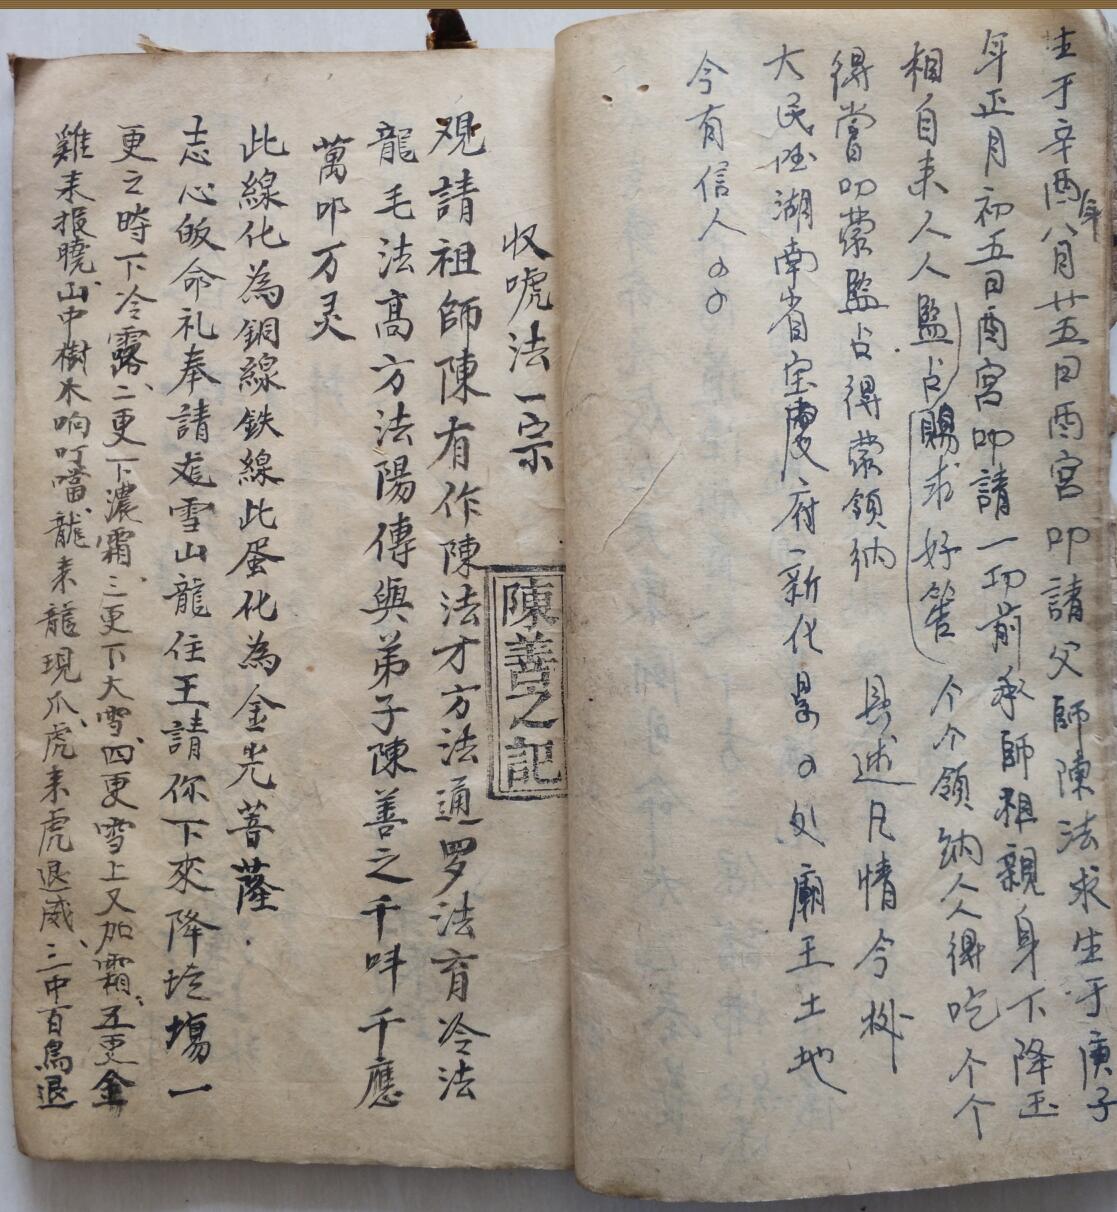 生于辛酉年八月廿五日酉宮叩請父師陳法求生于庚子
年正月初五日酉宮叩請一切前承師祖親身下降玉
相自未人人監占賜求好筶个个領納人人得吃个个
得當叩蒙監占得蒙領納 具述凡情今
大民国湖南省宝慶府新化县〇处廟王土地
今有信人〇〇
收嚎法一宗
陳善之記
観請祖師陳有作陳法才方法通罗法育冷法
龍毛法高方法陽傳與弟子陳善之千叫千應
萬叩万灵
此線化為銅線鉄線此蛋化為金光菩薩
志心皈命礼奉請雪山龍住王請你下來降坛場一
更之時下冷露二更下濃霜三更下大雪四更雪上又加霜五更金
雞來报曉山中樹木响叮噹龍來龍現爪虎來虎退威三中百鳥退